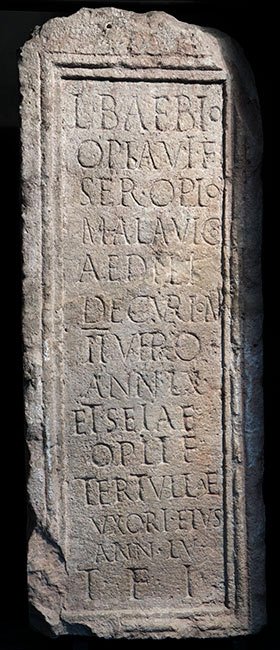 L·BAEBIO
OPTAVI F
SER·OPIO
MALAVIC
AEDILI
DECVRION
IIVIRO
ANN·LX
ET SEIAE
OPLI F
TERTVLLAE
VXORI·EIVS
ANN·LV·
T F I